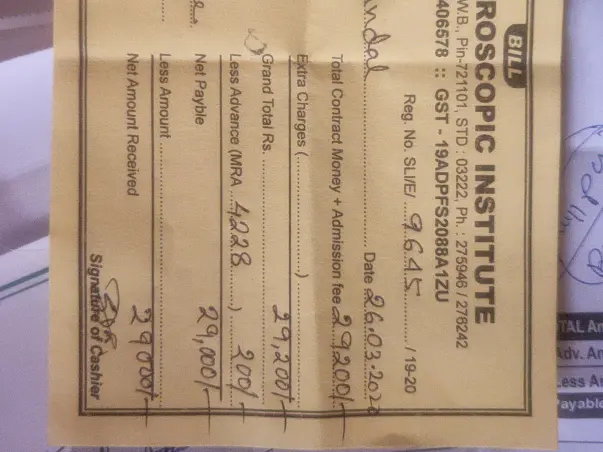 BILL
ROSCOPIC INSTITUTE
W.B., Pin-721101, STD : 03222, Ph. : 275946 / 276242
406578 :: GST - 19ADPFS2088A1ZU
Reg. No. SLI/E/ 9645 / 19-20
andal Date 26.03.2020
Total Contract Money + Admission fee 29200/-
Extra Charges ( )
Grand Total Rs. 29,200/-
Less Advance (MRA 4228 ) 200/-
Net Payble 29,000/-
Less Amount
Net Amount Received 29000/-
Signature of Cashier
TAL An
Adv. Am
Less A
Payable